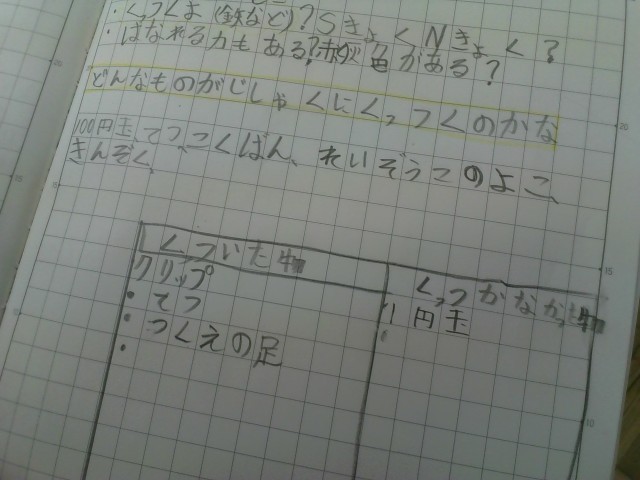 ・くっつくよ(鉄など)?Sきょく Nきょく?
・はなれる力もある?赤 色がある?
どんなものがじしゃくにくっつくのかな
100円玉、てつ、こくばん、れいぞうこのよこ、
きんぞく、
くっついた物
くっつかなかった物
クリップ
・てつ
・つくえの足
・
1円玉